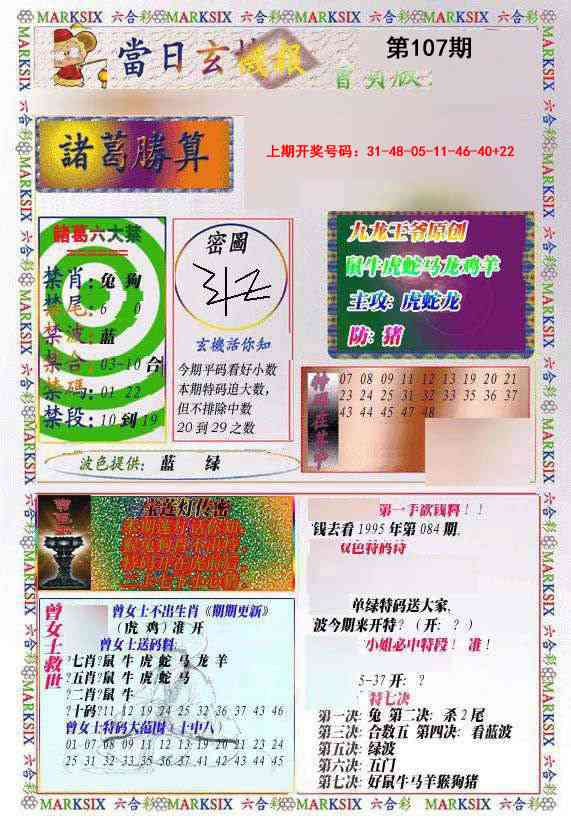 MARKSIX 六合彩 MARKSIX 六合彩 MARKSIX 六合彩 MARKSIX 六合彩 MARKSIX
當日玄機報
第107期
諸葛勝算
上期开奖号码：31-48-05-11-46-40+22
諸葛六大禁
禁肖：兔 狗
禁尾：6 0
禁波：蓝
禁合：03-10合
禁碼：01 22
禁段：10到19
密圖
玄機活你知
今期平码看好小数
本期特码追大数,
但不排除中数
20到29之数
九龙王爷原创
鼠牛虎蛇马龙鸡羊
主攻: 虎蛇龙
防: 猪
07 08 09 11 12 13 19 20 21
23 24 25 31 32 33 35 36 37
43 44 45 47 48
波色提供: 蓝 绿
宝莲灯传密
第一手欲钱料！！
钱去看1995年第084期.
双色特码诗
单绿特码送大家,
波今期来开特？（开: ？）
小姐必中特段！ 准！
5-37 开: ？
特七决
第一决: 兔 第二决: 杀2尾
第三决: 合数五 第四决: 看蓝波
第五决: 绿波
第六决: 五门
第七决: 好鼠牛马羊猴狗猪
曾女士救世
曾女士不出生肖《期期更新》
(虎 鸡) 准 开
曾女士送码料:
?七肖?鼠 牛 虎 蛇 马 龙 羊
?五肖?鼠 牛 虎 蛇 马
?二肖?鼠 牛
?十码?11 12 19 24 25 32 36 37 43 46
曾女士特码大范围（十中八）
01 07 08 09 11 12 13 19 20 21 23 24
25 31 32 33 35 36 37 41 42 43 44 45
MARKSIX 六合彩 MARKSIX 六合彩 MARKSIX 六合彩 MARKSIX 六合彩 MARKSIX